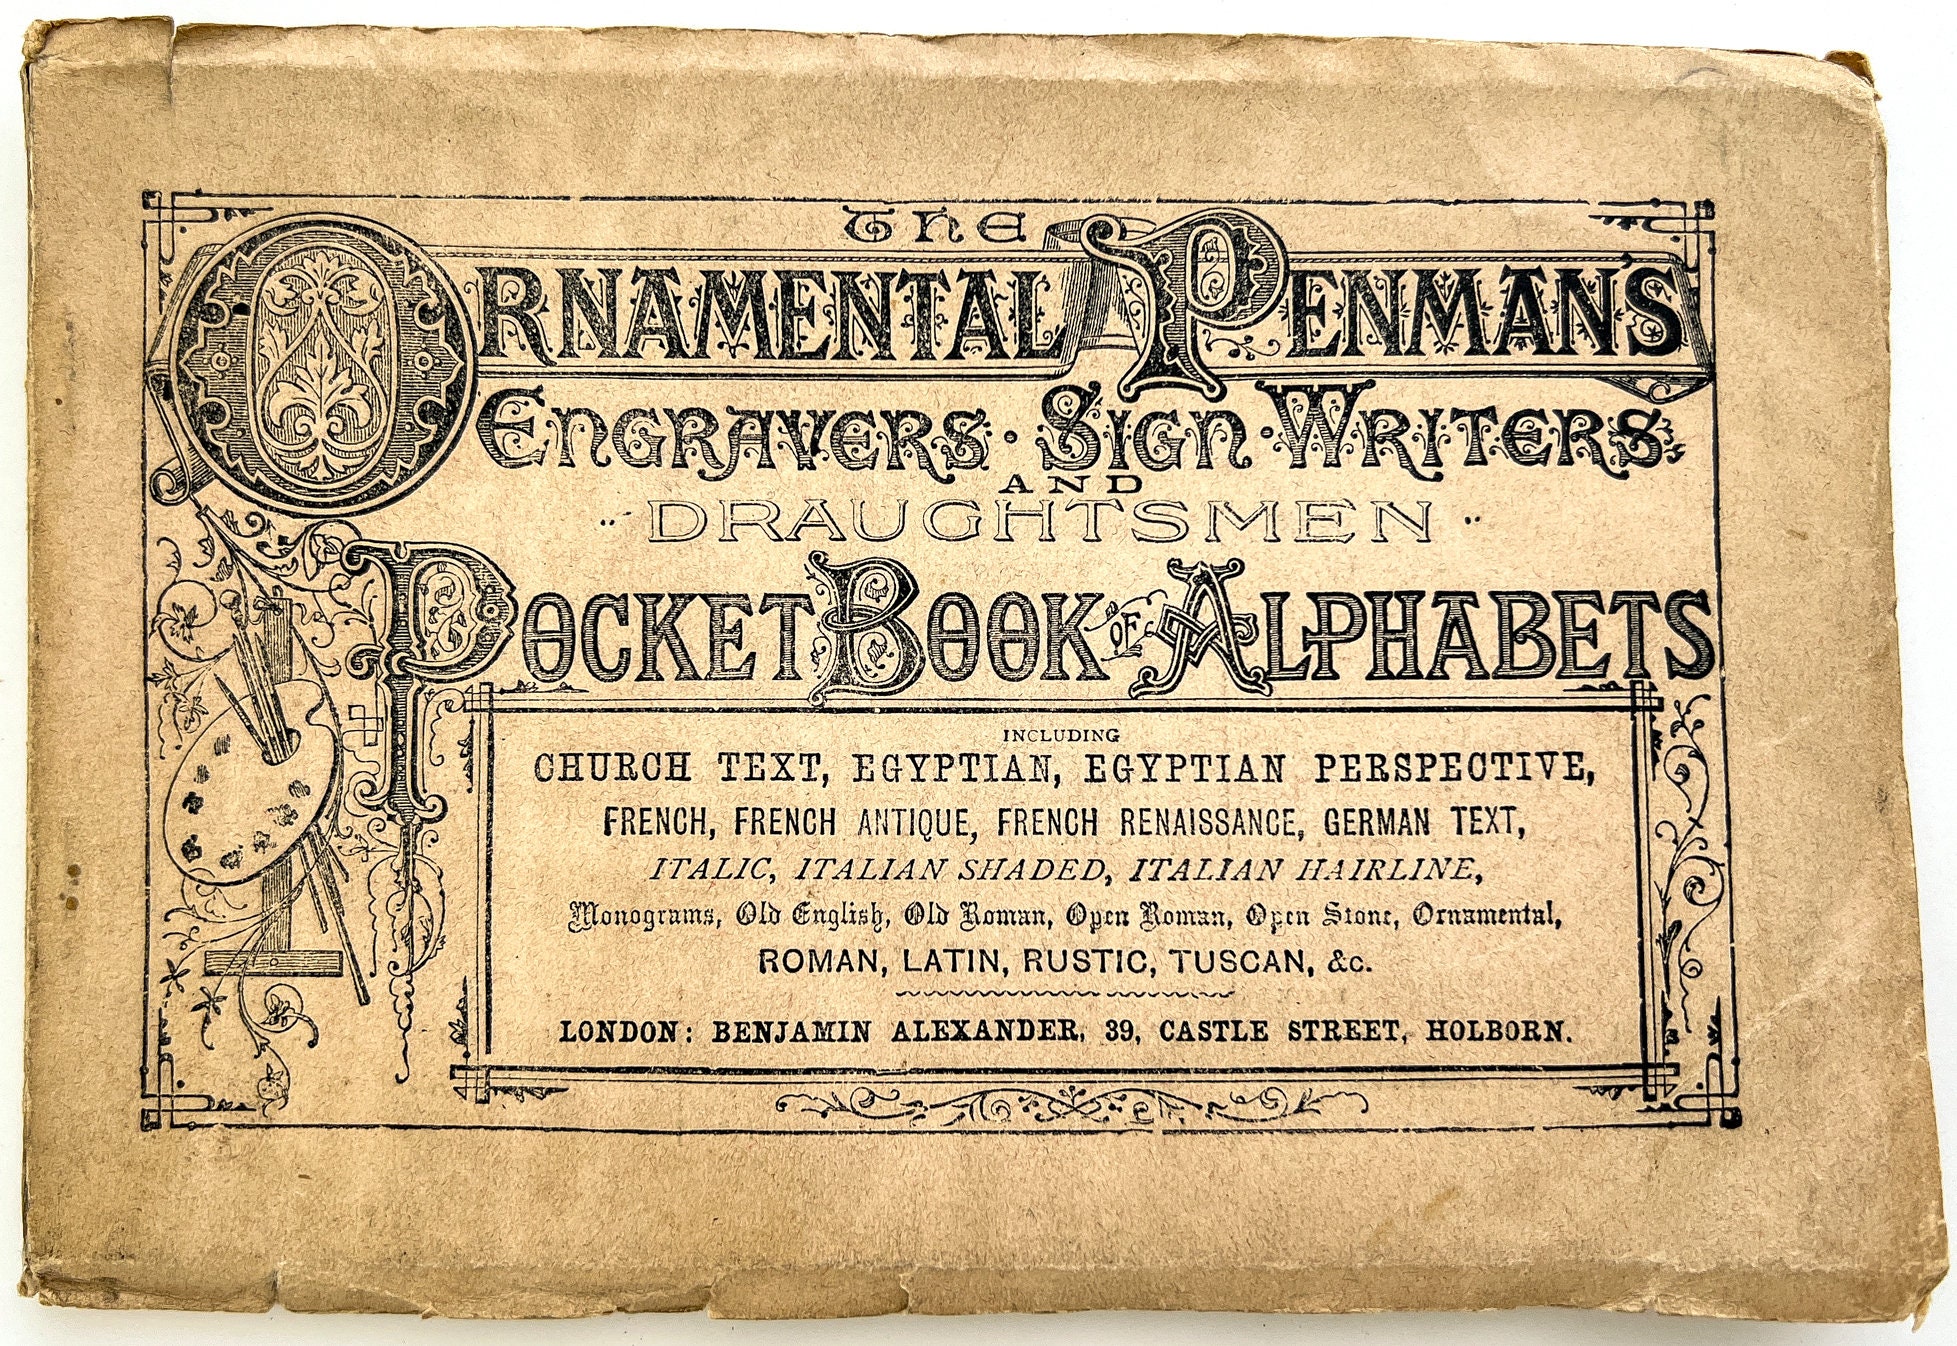 THE
ORNAMENTAL PENMAN'S
ENGRAVERS · SIGN · WRITERS
AND
DRAUGHTSMEN
POCKET BOOK OF ALPHABETS
INCLUDING
CHURCH TEXT, EGYPTIAN, EGYPTIAN PERSPECTIVE,
FRENCH, FRENCH ANTIQUE, FRENCH RENAISSANCE, GERMAN TEXT,
ITALIC, ITALIAN SHADED, ITALIAN HAIRLINE,
Monograms, Old English, Old Roman, Open Roman, Open Stone, Ornamental,
ROMAN, LATIN, RUSTIC, TUSCAN, &c.
LONDON: BENJAMIN ALEXANDER, 39, CASTLE STREET, HOLBORN.